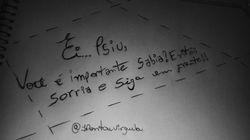 Ei... Psiu,
Você é importante sabia? Então
sorria e siga em frente!!